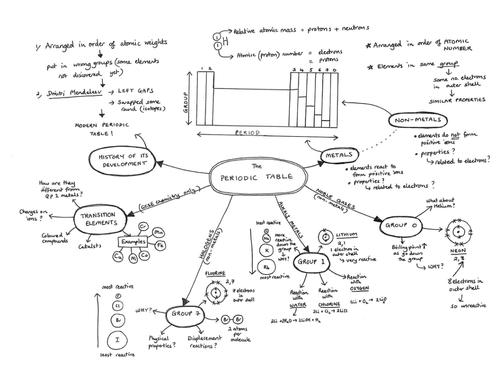 1, Arranged in order of atomic weights
put in wrong groups (some elements
not discovered yet)
2, Dmitri Mendeleev → LEFT GAPS
→ Swapped some
round (isotopes)
MODERN PERIODIC
TABLE!
HISTORY OF ITS
DEVELOPMENT
Relative atomic mass = protons + neutrons
1
1
H
Atomic (proton) number = electrons
= protons
1 2 3 4 5 6 7 0
GROUP
PERIOD
* Arranged in order of ATOMIC
NUMBER
* Elements in same group
same no. electrons
in outer shell
SIMILAR PROPERTIES
NON-METALS
• elements do not form
positive ions
• properties?
↳ related to electrons?
METALS
• elements react to
form positive ions
• properties?
↳ related to electrons?
The
PERIODIC TABLE
(GCSE chemistry only)
TRANSITION
ELEMENTS
How are they
different from
GP 1 metals?
Charges on
ions?
Coloured
compounds
Catalysts
Examples
Cr
Mn
Fe
Co
Ni
Cu
HALOGENS
(non-metals)
GROUP 7
FLUORINE
2,7
7 electrons in
outer shell
Br Br
2 atoms per
molecule
Displacement
reactions?
Physical
properties?
WHY?
most reactive
F
Cl
Br
I
least reactive
ALKALI METALS
GROUP 1
least reactive
Li
Na
K
Rb
most reactive
more
reactive
down
the
group
WHY?
LITHIUM
2,1
1 electron in
outer shell
↳ very reactive
Reaction
with
WATER
Reaction
with
CHLORINE
2Li + Cl₂ → 2LiCl
Reaction
with
OXYGEN
NOBLE GASES
(non-metals)
GROUP 0
What about
Helium?
Boiling point ↑
as go down
the group
↳ WHY?
NEON
2,8
8 electrons in
outer shell
so unreactive